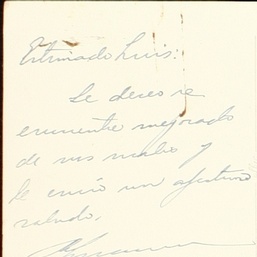 Estimado Luis:
Le deseo se
encuentre mejorado
de sus males y
le envío un afectuoso
saludo.